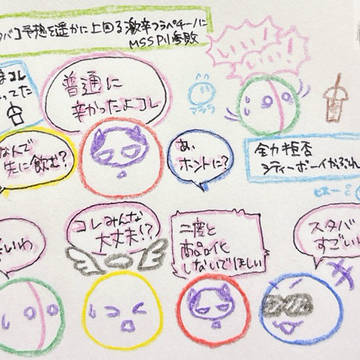 バコ予想を遥かに上回る激辛フラペチーノに
MSSP小参敗
コレ
ってた
普通に
辛かったよコレ
いい!
なんで
先に飲む?
あ、
ホントに?
全力拒否
シティーボーイ
いわ
コレみんな
大丈夫!?
二度と
商品化
しないでほしい
スタバ
すごい